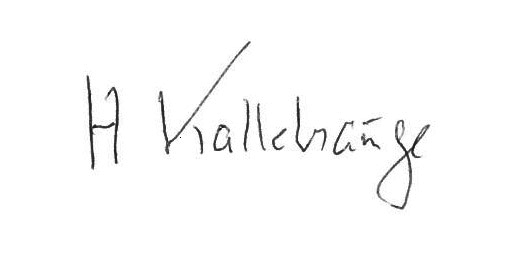 H Kallebränge